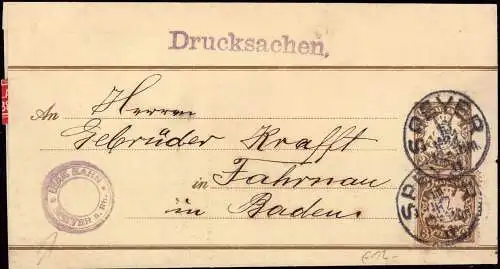 Drucksachen,
An Herren
Gebrüder Krafft
in Fahrnau
in Baden
SPEYER
SPEYER